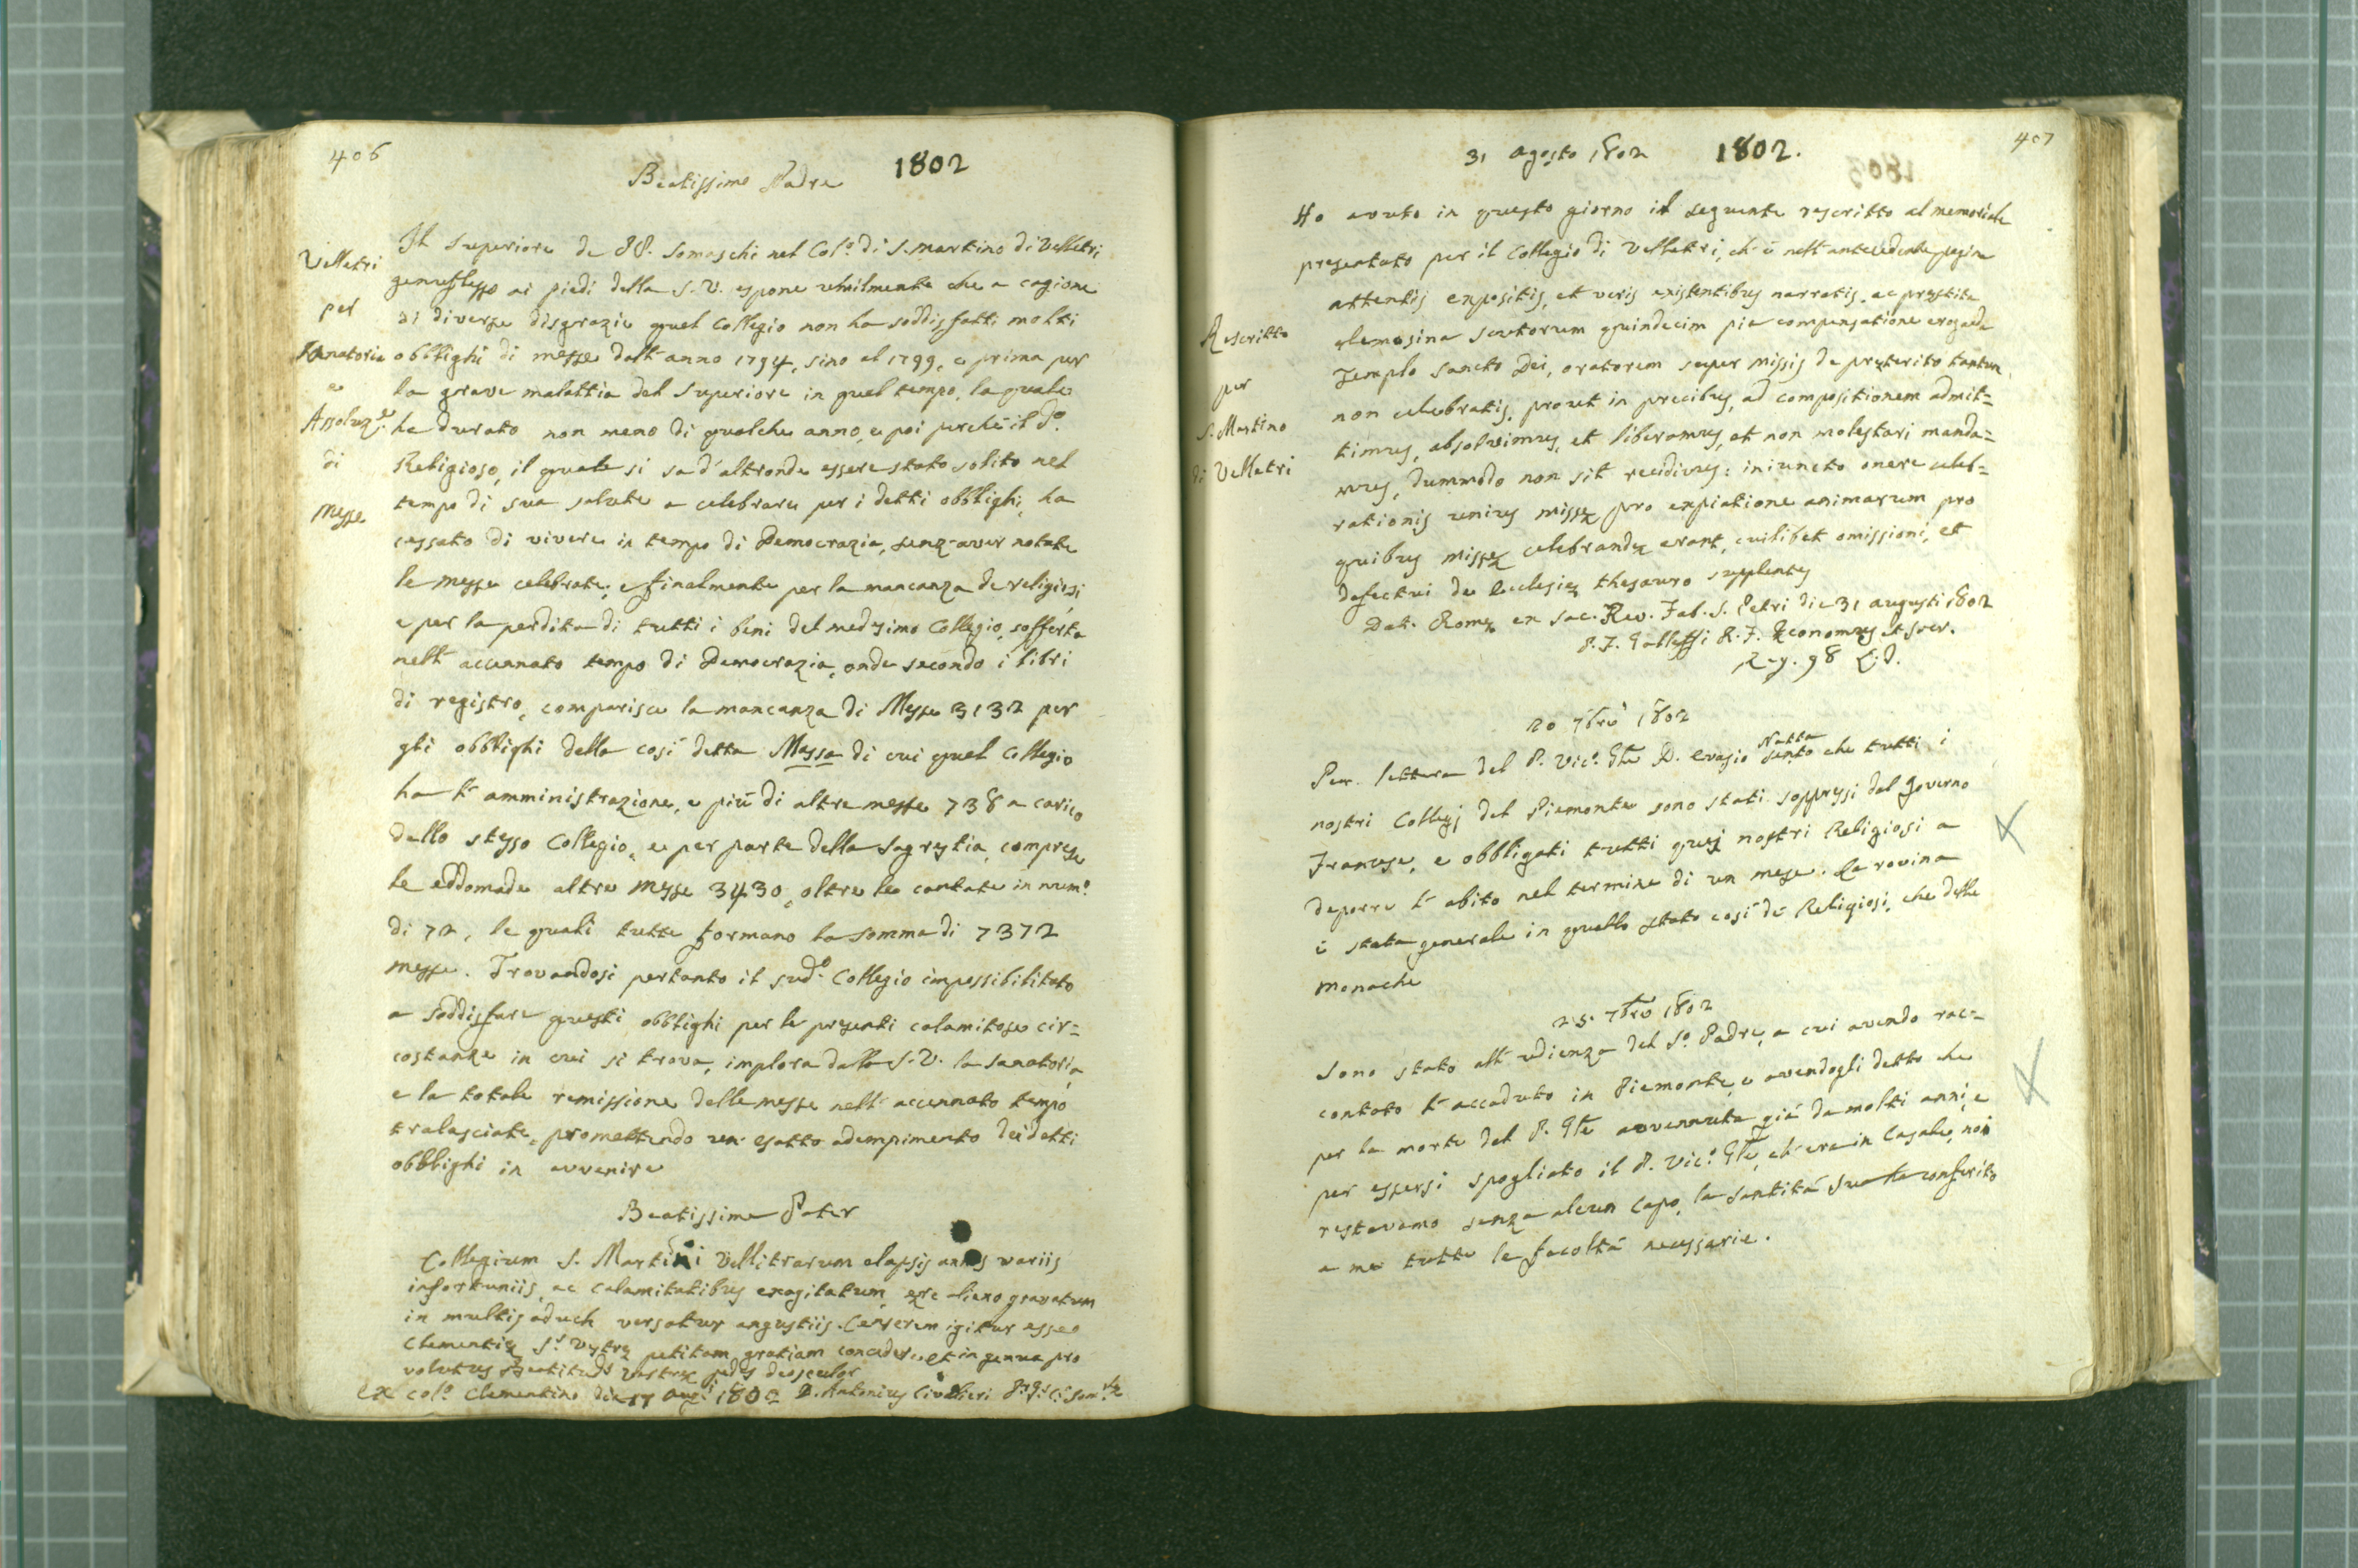 406
1802
Beatissimo Padre
Velletri
per
Sanatoria
e
Assoluz.e
di
Messe
Il Superiore de PP. Somaschi nel Col.o di S. Martino di Velletri
genuflesso ai piedi della S. V. espone umilmente che a cagione
di diverse disgrazie quel Collegio non ha soddisfatti molti
obblighi di messe dall' anno 1794, sino al 1799, e prima per
la grave malattia del Superiore in quel tempo, la quale
ha durato non meno di qualche anno, e poi perchè il d.o
Religioso, il quale si sa d'altronde essere stato solito nel
tempo di sua salute a celebrare per i detti obblighi, ha
cessato di vivere in tempo di Democrazia, senz-aver notate
le messe celebrate; e finalmente per la mancanza de religiosi
e per la perdita di tutti i beni del medesimo Collegio, sofferta
nell' accennato tempo di Democrazia, onde secondo i libri
di registro, comparisce la mancanza di Messe 3132 per
gli obblighi della così detta Massa di cui quel Collegio
ha l' amministrazione, e più di altre messe 738 a carico
dello stesso Collegio, e per parte della Sagrestia, comprese
le eddomade altre Messe 3430, oltre le cantate in num.o
di 72, le quali tutte formano la somma di 7372
messe. Trovandosi pertanto il sud.o Collegio impossibilitato
a soddisfare questi obblighi per le presenti calamitose cir=
costanze in cui si trova, implora dalla S. V. la sanatoria,
e la totale remissione delle messe nell' accennato tempo
tralasciate, promettendo un esatto adempimento dei detti
obblighi in avvenire
Beatissime Pater
Collegium S. Martini Vellitrarum elapsis annis variis
infortuniis, ac calamitatibus exagitatum, ære alieno gravatum
in multis adhuc versatur angustiis. Censerem igitur esse
Clementiæ S.s Vestræ petitam gratiam concedere, et in genua pro
volutus Beatitud.s Vestræ pedes deosculor
Ex Col.o Clementino die 17 Aug.i 1802 D. Antonius Civalieri P. G. C. Som.
407
31 Agosto 1802
1802.
Ho avuto in questo giorno il seguente rescritto al memoriale
presentato per il Collegio di Velletri, ch' è nell' antecedente pagina
Rescritto
per
S. Martino
di Velletri
attentis expositis, et veris existentibus narratis, ac præstita
elemosina scutorum quindecim pia compensatione eroganda
Templo Sancto Dei, oratorem super missis de præterito tantum
non celebratis, prout in precibus, ad compositionem admit=
timus, absolvimus, et liberamus, et non molestari manda=
mus, dummodo non sit recidivus: iniuncto onere celeb=
rationis unius missæ pro expiatione animarum pro
quibus missæ celebrandæ erant, cuilibet omissioni, et
defectui de Ecclesiæ thesauro supplentes
Dat. Romæ ex Sac. Rev. Fab. S. Petri die 31 augusti 1802
P. F. Galleffi R. F. Œconomus et Secr.
Reg. 98
20 7bre 1802
Per lettera del P. Vic.o Gle D. Evasio Natta sento che tutti i
nostri Collegj del Piemonte sono stati soppressi dal Governo
Francese, e obbligati tutti quei nostri Religiosi a
deporre l' abito nel termine di un mese. La rovina
è stata generale in quello stato così de Religiosi, che delle
Monache
25. 7bre 1802
Sono stato all' udienza del S.o Padre, a cui avendo rac=
contato l' accaduto in Piemonte, e avendogli detto che
per la morte del P. Gle avvennuta già da molti anni, e
per essersi spogliato il P. Vic.o Gle, ch' era in Casale, noi
restavamo senza alcun capo, la Santità Sua ha conferito
a me tutte le facoltà necessarie.